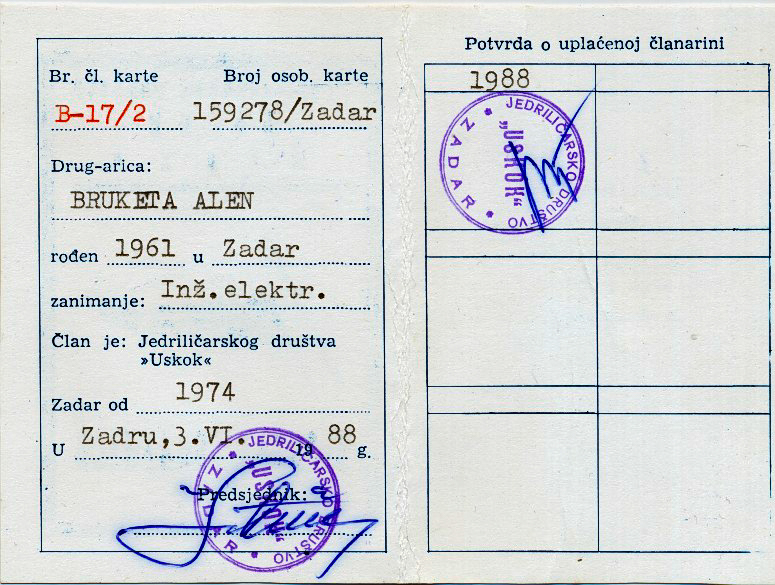 Br. čl. karte Broj osob. karte
B-17/2 159278/Zadar
Drug-arica:
BRUKETA ALEN
rođen 1961 u Zadar
zanimanje: Inž.elektr.
Član je: Jedriličarskog društva
»Uskok«
Zadar od 1974
U Zadru,3.VI. 19 88 g.
Predsjednik:
JEDRILIČARSKO DRUŠTVO
„USKOK“
ZADAR
Potvrda o uplaćenoj članarini
1988
JEDRILIČARSKO DRUŠTVO
„USKOK“
ZADAR